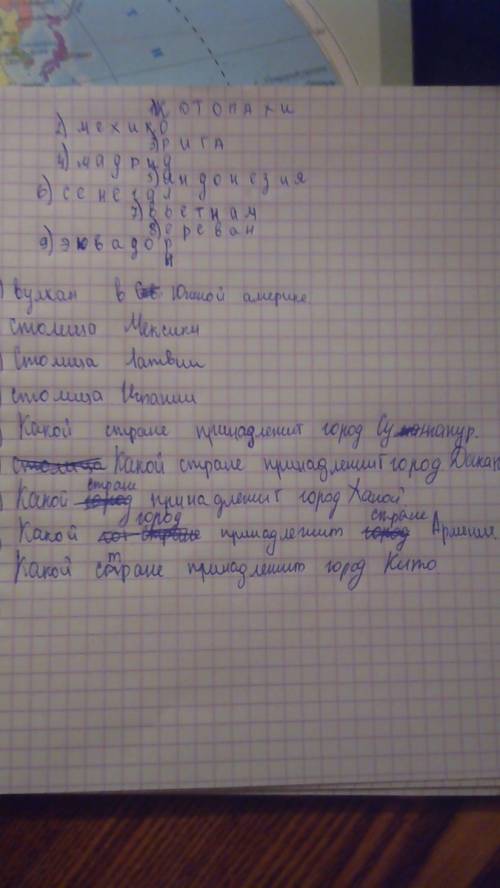 1) КОТОПАХИ
2) мехико
3) РИГА
4) мадрид
5) индонезия
6) сенегал
7) вьетнам
8) ереван
9) эквадор
и
) вулкан в Южной америке
столица Мексики
) Столица Латвии
столица Испании
) Какой стране принадлежит город
) Какой стране принадлежит город Дакар
) Какой стране принадлежит город Ханой
) Какой город принадлежит стране Армении
Какой стране принадлежит город Кито